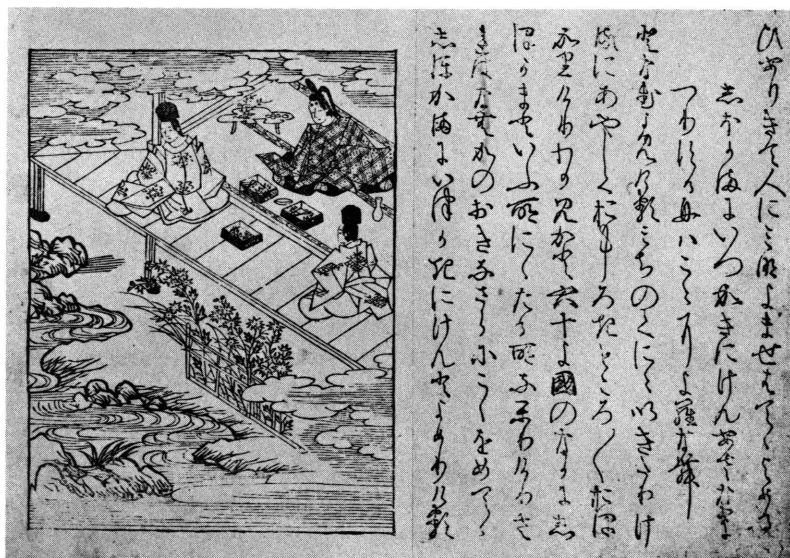 ひありきて人にみなよませはてゝよめる
しほかまにいつかきにけんあさなきに
つりする舟はこゝによらなん
となむよみけるみちのくにゝいきたりけ
るにあやしくおもしろきところ／＼おほ
かりけりわかみかと六十よ國のなかにし
ほかまといふ所にゝたる所なかりけりさ
れはなむかのおきなさらにこゝをめてゝ
しほかまにいつかきにけんとよめりける